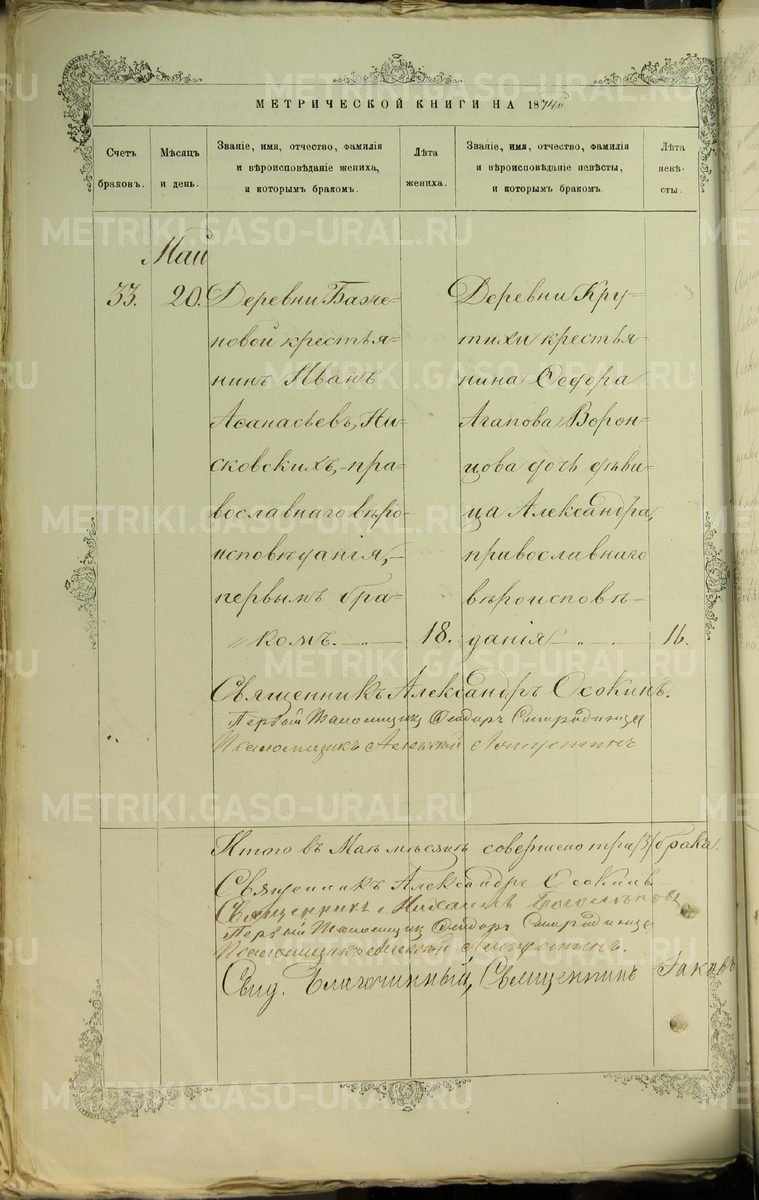 МЕТРИЧЕСКОЙ КНИГИ НА 1874й
Счетъ браковъ.
Мѣсяцъ и день.
Званіе, имя, отчество, фамилія и вѣроисповѣданіе жениха, и которымъ бракомъ.
Лѣта жениха.
Званіе, имя, отчество, фамилія и вѣроисповѣданіе невѣсты, и которымъ бракомъ.
Лѣта невѣсты.
Маи
33. 20. Деревни Баже=
новой крестья=
нинъ Иванъ
Аѳанасьевъ, Ни=
сковскихъ, пра=
вославнаго вѣро
исповѣданія,
первымъ бра=
комъ. 18.
Деревни Кру=
тихи крестья=
нина Ѳедора
Агапова Ворон=
цова дочь дѣви=
ца Александра,
православнаго
вѣроисповѣ=
данія 16.
Священникъ Александръ Осокинъ.
Первый Псаломщикъ Ѳеодоръ
Псаломщикъ Алексѣй
Итого въ Маѣ мѣсяцѣ совершено три /3/ брака.
Священникъ Александръ Осокинъ
Священникъ Михаилъ
Первый Псаломщикъ Ѳеодоръ
Псаломщикъ Алексѣй
Свид. Благочинный, Священникъ Іаковъ
METRIKI.GASO-URAL.RU